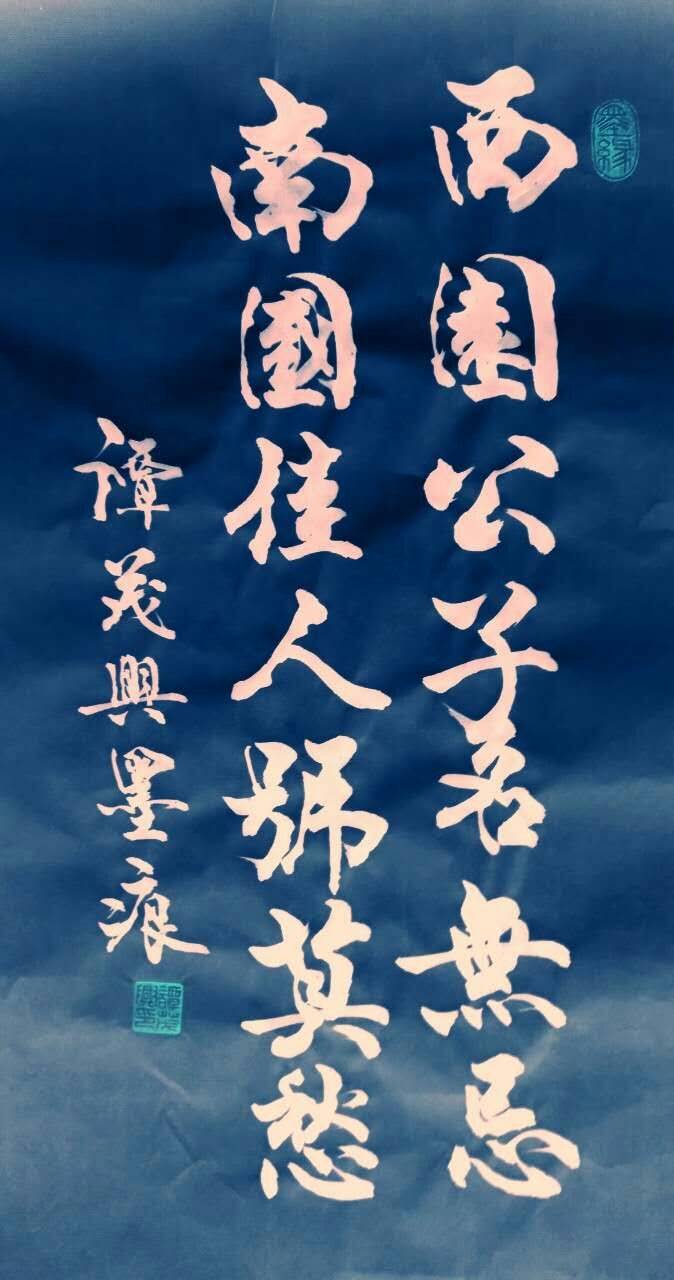 西園公子名無忌
南國佳人號莫愁
譚茂興墨痕